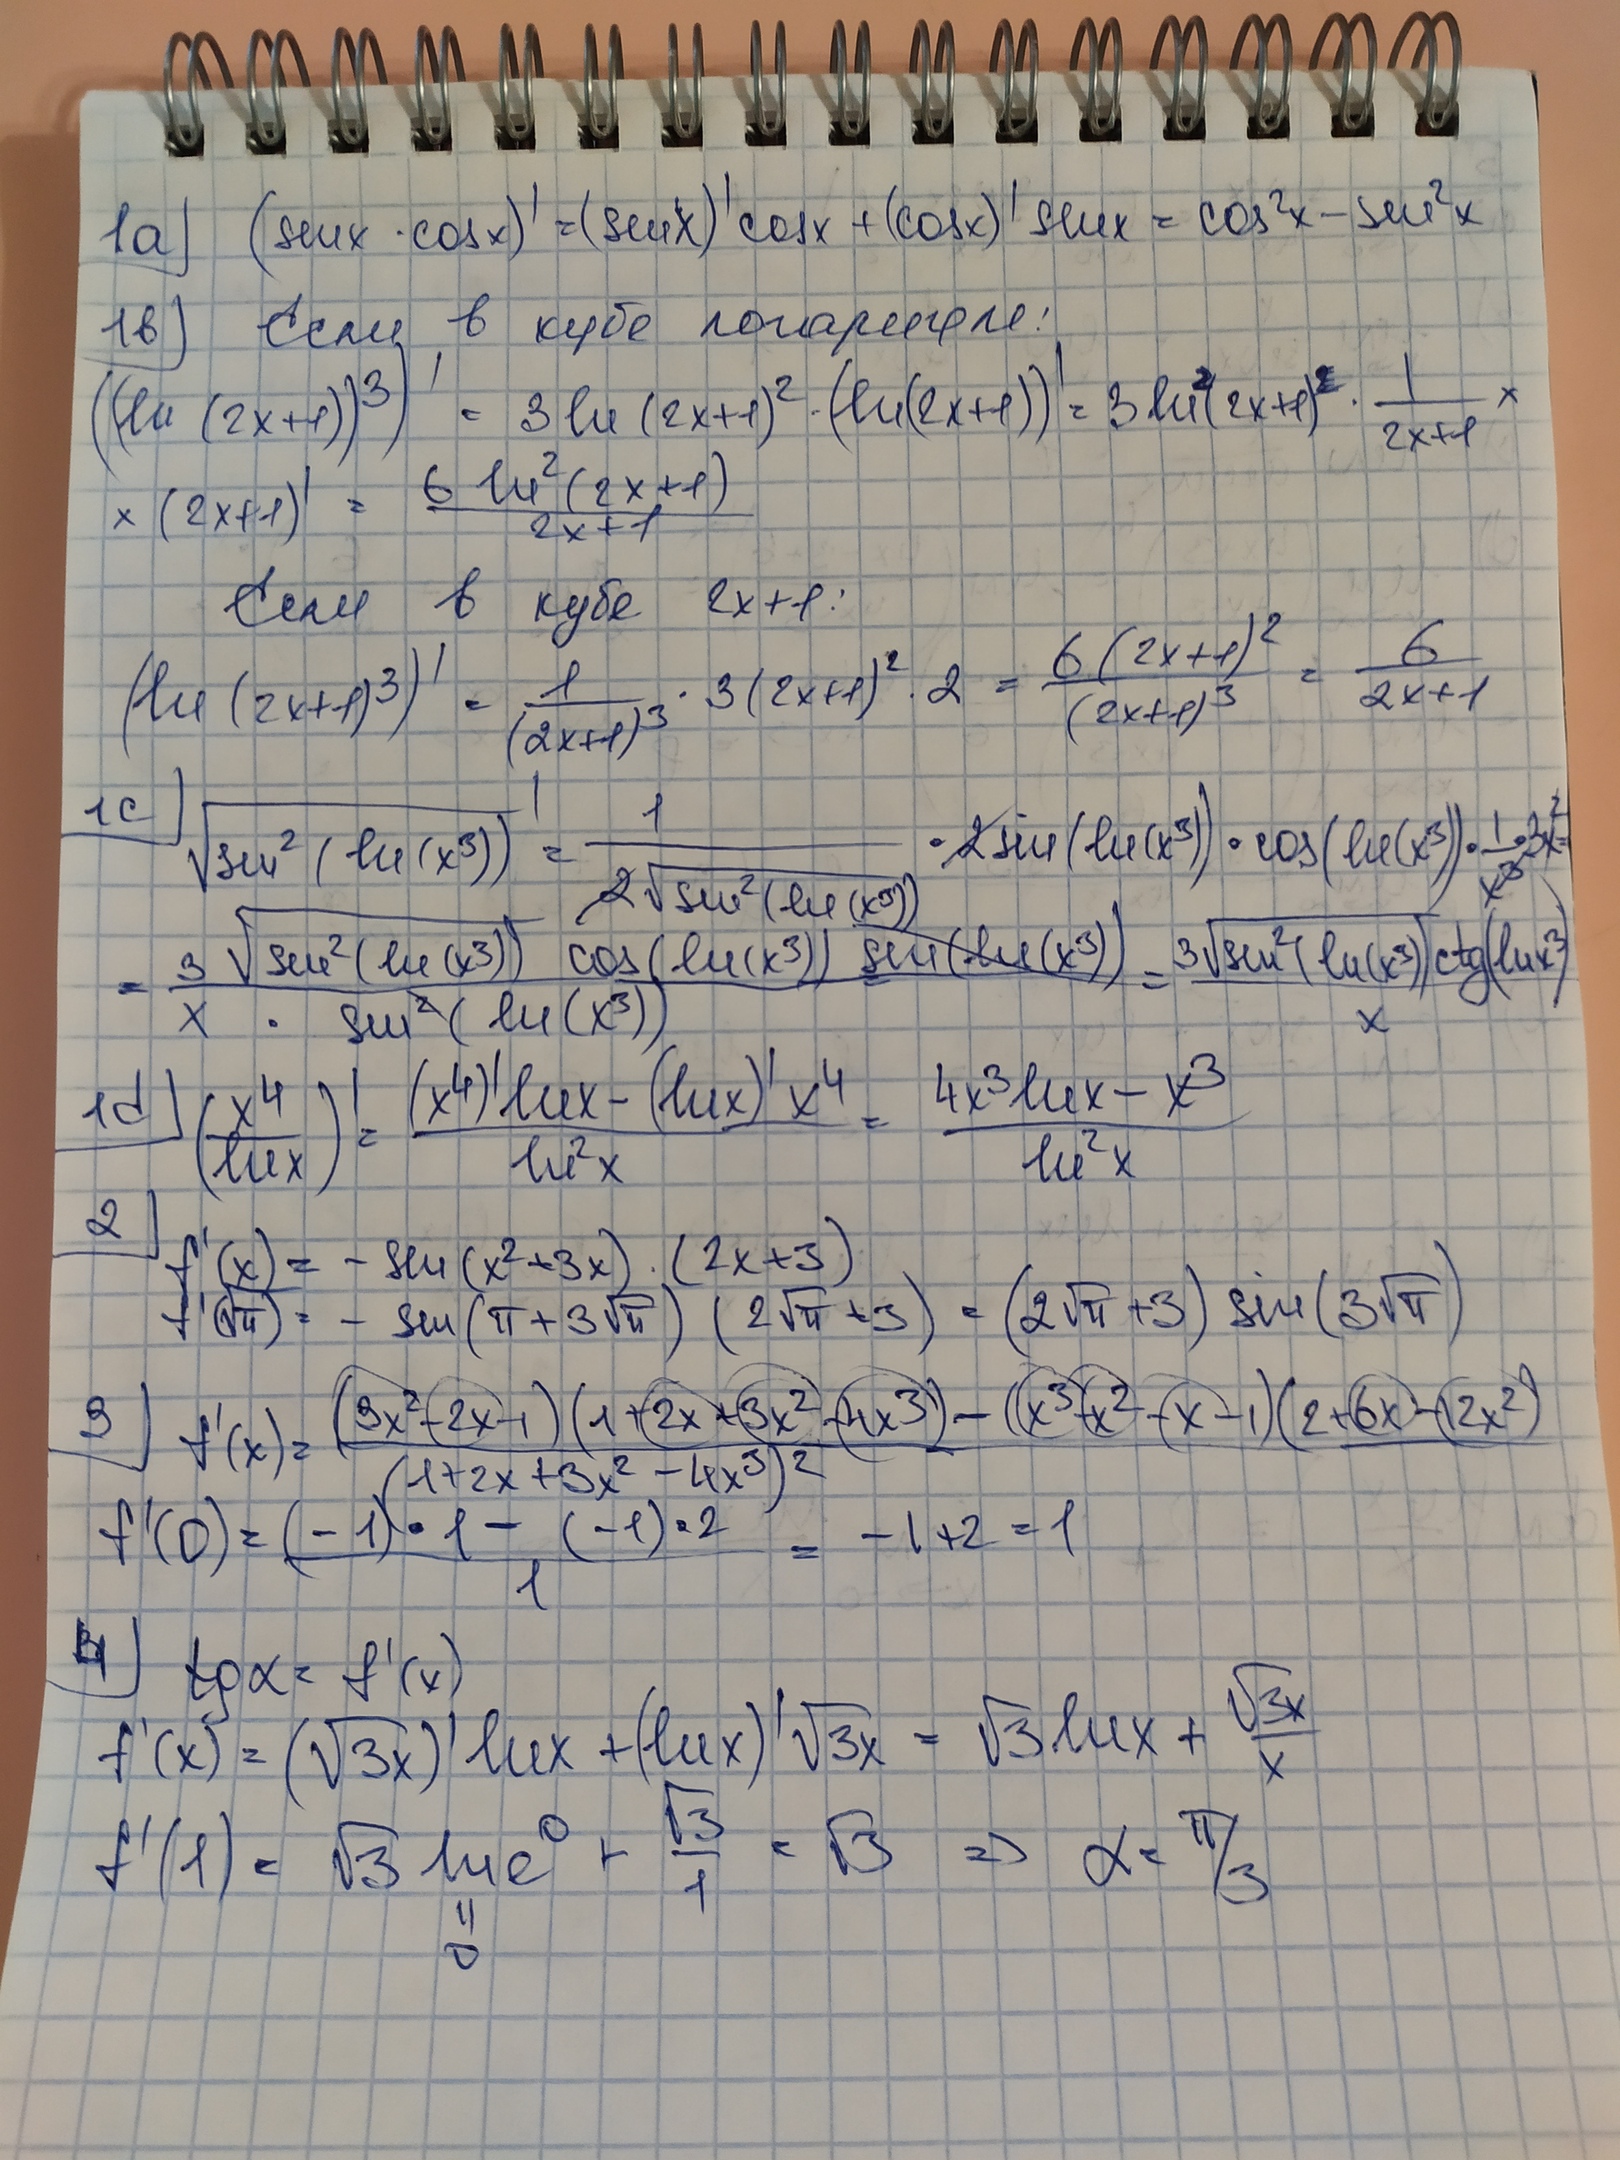 1a) (sin x · cos x)' = (sin x)' cos x + (cos x)' sin x = cos²x − sin²x
1b) Если в кубе логарифм:
((ln (2x+1))³)' = 3 ln (2x+1)² · (ln(2x+1))' = 3 ln²(2x+1)² · 1/(2x+1) ×
× (2x+1)' = 6 ln²(2x+1)/(2x+1)
Если в кубе 2x+1:
(ln (2x+1)³)' = 1/(2x+1)³ · 3(2x+1)² · 2 = 6(2x+1)²/(2x+1)³ = 6/(2x+1)
1c) √(sin²(ln(x³)))' = 1/(2√(sin²(ln(x³)))) · 2sin(ln(x³)) · cos(ln(x³)) · 1/x³ · 3x² =
= 3√(sin²(ln(x³))) cos(ln(x³)) sin(ln(x³))/(x · sin²(ln(x³))) = 3√(sin²(ln(x³))) ctg(ln x³)/x
1d) (x⁴/ln x)' = ((x⁴)' ln x − (ln x)' x⁴)/ln²x = (4x³ ln x − x³)/ln²x
2) f'(x) = − sin(x²+3x) · (2x+3)
f'(√π) = − sin(π + 3√π) (2√π + 3) = (2√π + 3) sin(3√π)
3) f'(x) = ((3x²−2x−1)(1+2x+3x²−4x³) − (x³−x²−x−1)(2+6x−12x²))/(1+2x+3x²−4x³)²
f'(0) = ((−1)·1 − (−1)·2)/1 = −1+2 = 1
4) tg α = f'(x)
f'(x) = (√3x)' ln x + (ln x)' √3x = √3 ln x + √3x/x
f'(1) = √3 ln e⁰ + √3/1 = √3 ⇒ α = π/3
=
0